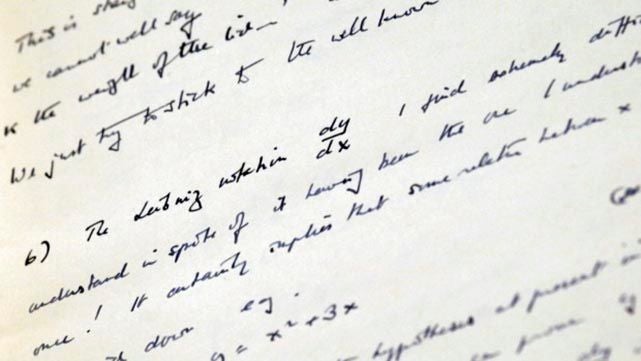 This is
we cannot well say
is the weight of the
We just try to stick to the well known
6) The Leibniz notation dy/dx I find extremely diffi
understand in spite of it having been the one I underst
once! It certainly implies that some relation between x
down eg.
y = x² + 3x
hypotheses at present in
prove